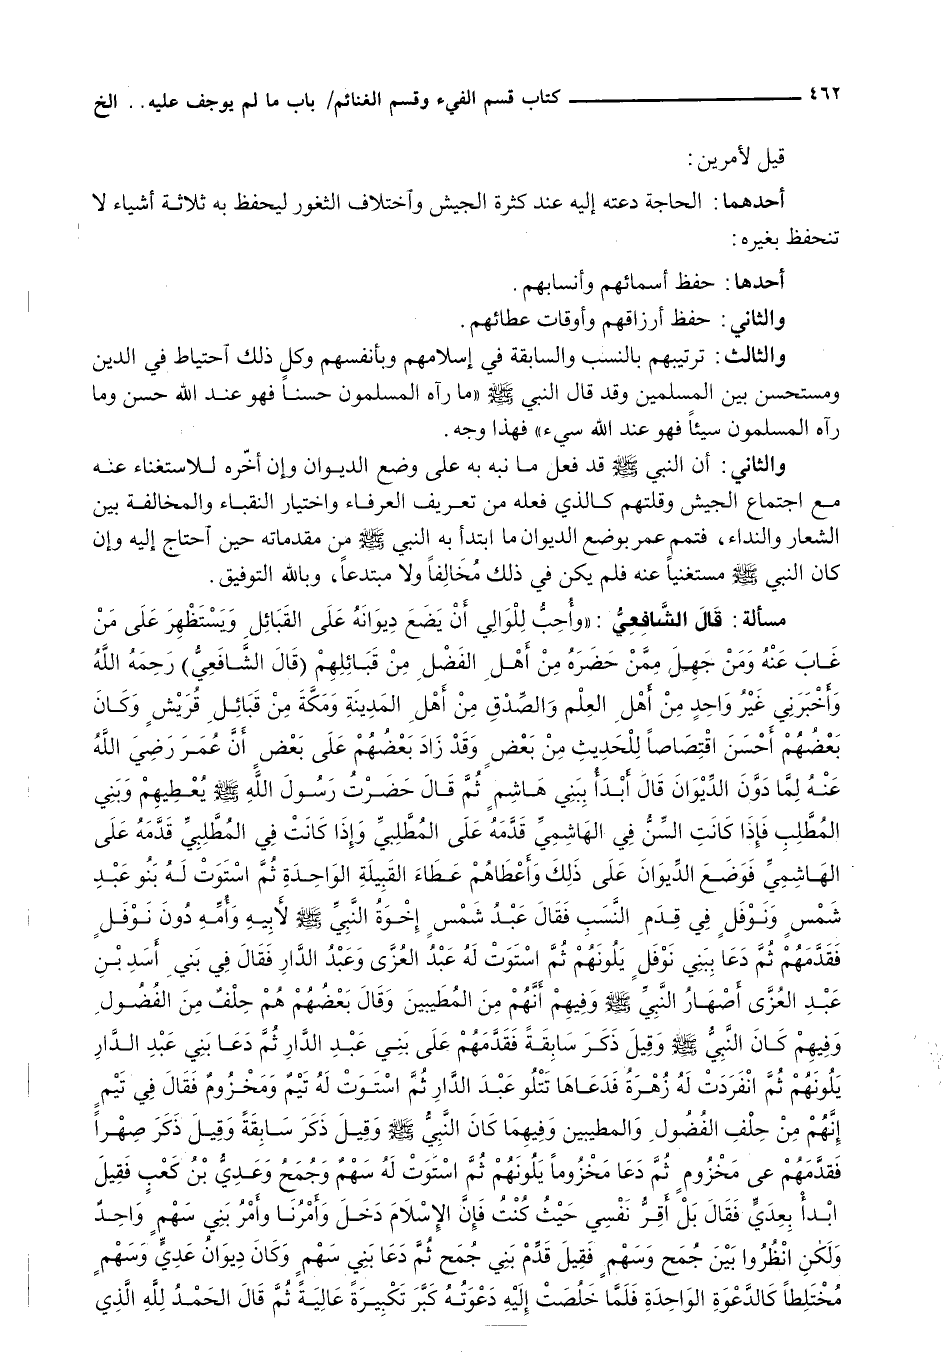 ٤٦٢ ــــــــــــــ كتاب قسم الفيء وقسم الغنائم/ باب ما لم يوجف عليه. . الخ
قيل لأمرين:
أحدهما: الحاجة دعته إليه عند كثرة الجيش وآختلاف الثغور ليحفظ به ثلاثة أشياء لا
تنحفظ بغيره:
أحدها: حفظ أسمائهم وأنسابهم.
والثاني: حفظ أرزاقهم وأوقات عطائهم.
والثالث: ترتيبهم بالنسب والسابقة في إسلامهم وبأنفسهم وكل ذلك آحتياط في الدين
ومستحسن بين المسلمين وقد قال النبي ﷺ «ما رآه المسلمون حسناً فهو عند الله حسن وما
رآه المسلمون سيئاً فهو عند الله سيء» فهذا وجه.
والثاني: أن النبي ﷺ قد فعل ما نبه به على وضع الديوان وإن أخّره للاستغناء عنه
مع اجتماع الجيش وقلتهم كالذي فعله من تعريف العرفاء واختيار النقباء والمخالفة بين
الشعار والنداء، فتمم عمر بوضع الديوان ما ابتدأ به النبي ﷺ من مقدماته حين آحتاج إليه وإن
كان النبي ﷺ مستغنياً عنه فلم يكن في ذلك مُخَالِفاً ولا مبتدعاً، وبالله التوفيق.
مسألة: قَالَ الشَّافِعِيُّ: «وأُحِبُّ لِلْوَالِي أَنْ يَضَعَ دِيوَانَهُ عَلَى القَبَائِلِ وَيَسْتَظْهِرَ عَلَى مَنْ
غَابَ عَنْهُ وَمَنْ جَهِلَ مِمَّنْ حَضَرَهُ مِنْ أَهْلِ الفَضْلِ مِنْ قَبَائِلِهِمْ (قَالَ الشَّافَعِيُّ) رَحِمَهُ اللَّهُ
وَأَخْبَرَنِي غَيْرُ وَاحِدٍ مِنْ أَهْلِ العِلْمِ وَالصِّدْقِ مِنْ أَهْلِ المَدِينَةِ وَمَكَّةَ مِنْ قَبَائِلِ قُرَيْشٍ وَكَانَ
بَعْضُهُمْ أَحْسَنَ اقْتِصَاصاً لِلْحَدِيثِ مِنْ بَعْضٍ وَقَدْ زَادَ بَعْضُهُمْ عَلَى بَعْضٍ أَنَّ عُمَرَ رَضِيَ اللَّهُ
عَنْهُ لِمَّا دَوَّنَ الدِّيْوَانَ قَالَ أَبْدَأُ بِبَنِي هَاشِمٍ ثُمَّ قَالَ حَضَرْتُ رَسُولَ اللَّهِ ﷺ يُعْطِيهِمْ وَبَنِي
المُطَّلِبِ فَإِذَا كَانَتِ السِّنُّ فِي الهَاشِمِيِّ قَدَّمَهُ عَلَى المُطَّلِبِيِّ وَإِذَا كَانَتْ فِي المُطَّلِبِيِّ قَدَّمَهُ عَلَى
الهَاشِمِيِّ فَوَضَعَ الدِّيوَانَ عَلَى ذَلِكَ وَأَعْطَاهُمْ عَطَاءَ القَبِيلَةِ الوَاحِدَةِ ثُمَّ اسْتَوَتْ لَهُ بَنُو عَبْدِ
شَمْسٍ وَنَوْفَلٍ فِي قِدَمِ النَّسَبِ فَقَالَ عَبْدُ شَمْسٍ إِخْوَةُ النَّبِيِّ ﷺ لأَبِيهِ وَأُمِّهِ دُونَ نَوْفَلٍ
فَقَدَّمَهُمْ ثُمَّ دَعَا بِبَنِي نَوْفَلٍ يَلُونَهُمْ ثُمَّ اسْتَوَتْ لَهُ عَبْدُ العُزَّى وَعَبْدُ الدَّارِ فَقَالَ فِي بَنِي أَسَدِ بْنِ
عَبْدِ العُزَّى أَصْهَارُ النَّبِيِّ ﷺ وَفِيهِمْ أَنَّهُمْ مِنَ المُطَيبِينَ وَقَالَ بَعْضُهُمْ هُمْ حِلْفٌ مِنَ الفُضُولِ
وَفِيهِمْ كَانَ النَّبِيُّ ﷺ وَقِيلَ ذَكَرَ سَابِقَةً فَقَدَّمَهُمْ عَلَى بَنِي عَبْدِ الدَّارِ ثُمَّ دَعَا بَنِي عَبْدِ الدَّارِ
يَلُونَهُمْ ثُمَّ انْفَرَدَتْ لَهُ زُهْرَةُ فَدَعَاهَا تَتْلُو عَبْدَ الدَّارِ ثُمَّ اسْتَوَتْ لَهُ تَيْمٌ وَمَخْزُومٌ فَقَالَ فِي تَيْمٍ
إِنَّهُمْ مِنْ حِلْفِ الفُضُولِ وَالمطيبين وَفِيهِمَا كَانَ النَّبِيُّ ﷺ وَقِيلَ ذَكَرَ سَابِقَةً وَقِيلَ ذَكَرَ صِهْراً
فَقَدَّمَهُمْ عى مَخْزُومٍ ثُمَّ دَعَا مَخْزُوماً يَلُونَهُمْ ثُمَّ اسْتَوَتْ لَهُ سَهْمٌ وَجُمَحُ وَعَدِيُّ بْنُ كَعْبٍ فَقِيلَ
ابْدأْ بِعَدِيٍّ فَقَالَ بَلْ أَقِرُّ نَفْسِي حَيْثُ كُنْتُ فَإِنَّ الإِسْلَامَ دَخَلَ وَأَمْرُنَا وأَمْرُ بَنِي سَهْمٍ وَاحِدٌ
وَلَكِنِ انْظُرُوا بَيْنَ جُمَحِ وَسَهْمٍ فَقِيلَ قَدِّمْ بَنِي جُمَحِ ثُمَّ دَعَا بَنِي سَهْمٍ وَكَانَ دِيوَانُ عَدِيٍّ وَسَهْمٍ
مُخْتَلِطاً كَالدَّعْوَةِ الوَاحِدَةِ فَلَمَّا خَلُصَتْ إِلَيْهِ دَعْوَتُهُ كَبَّرَ تَكْبِيرَةً عَالِيَةً ثُمَّ قَالَ الحَمْدُ لِلَّهِ الَّذِي